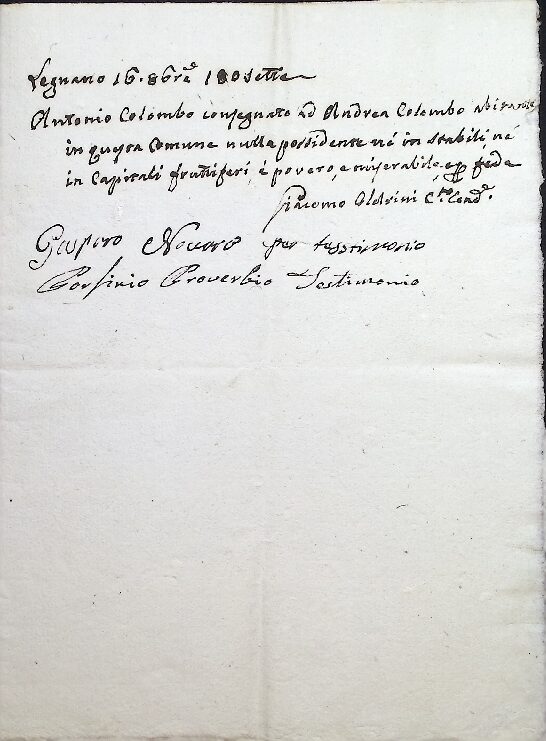 Legnano 16. 8brẽ 180sette
Antonio Colombo consegnato ad Andrea Colombo abitante
in questa Comune nulla possidente né in stabili, né
in Capitali fruttiferi, è povero, e miserabile, e per fede
Giacomo Oldrini
Gasparo Novaro per tesstimonio
Porfirio Proverbio Testimonio